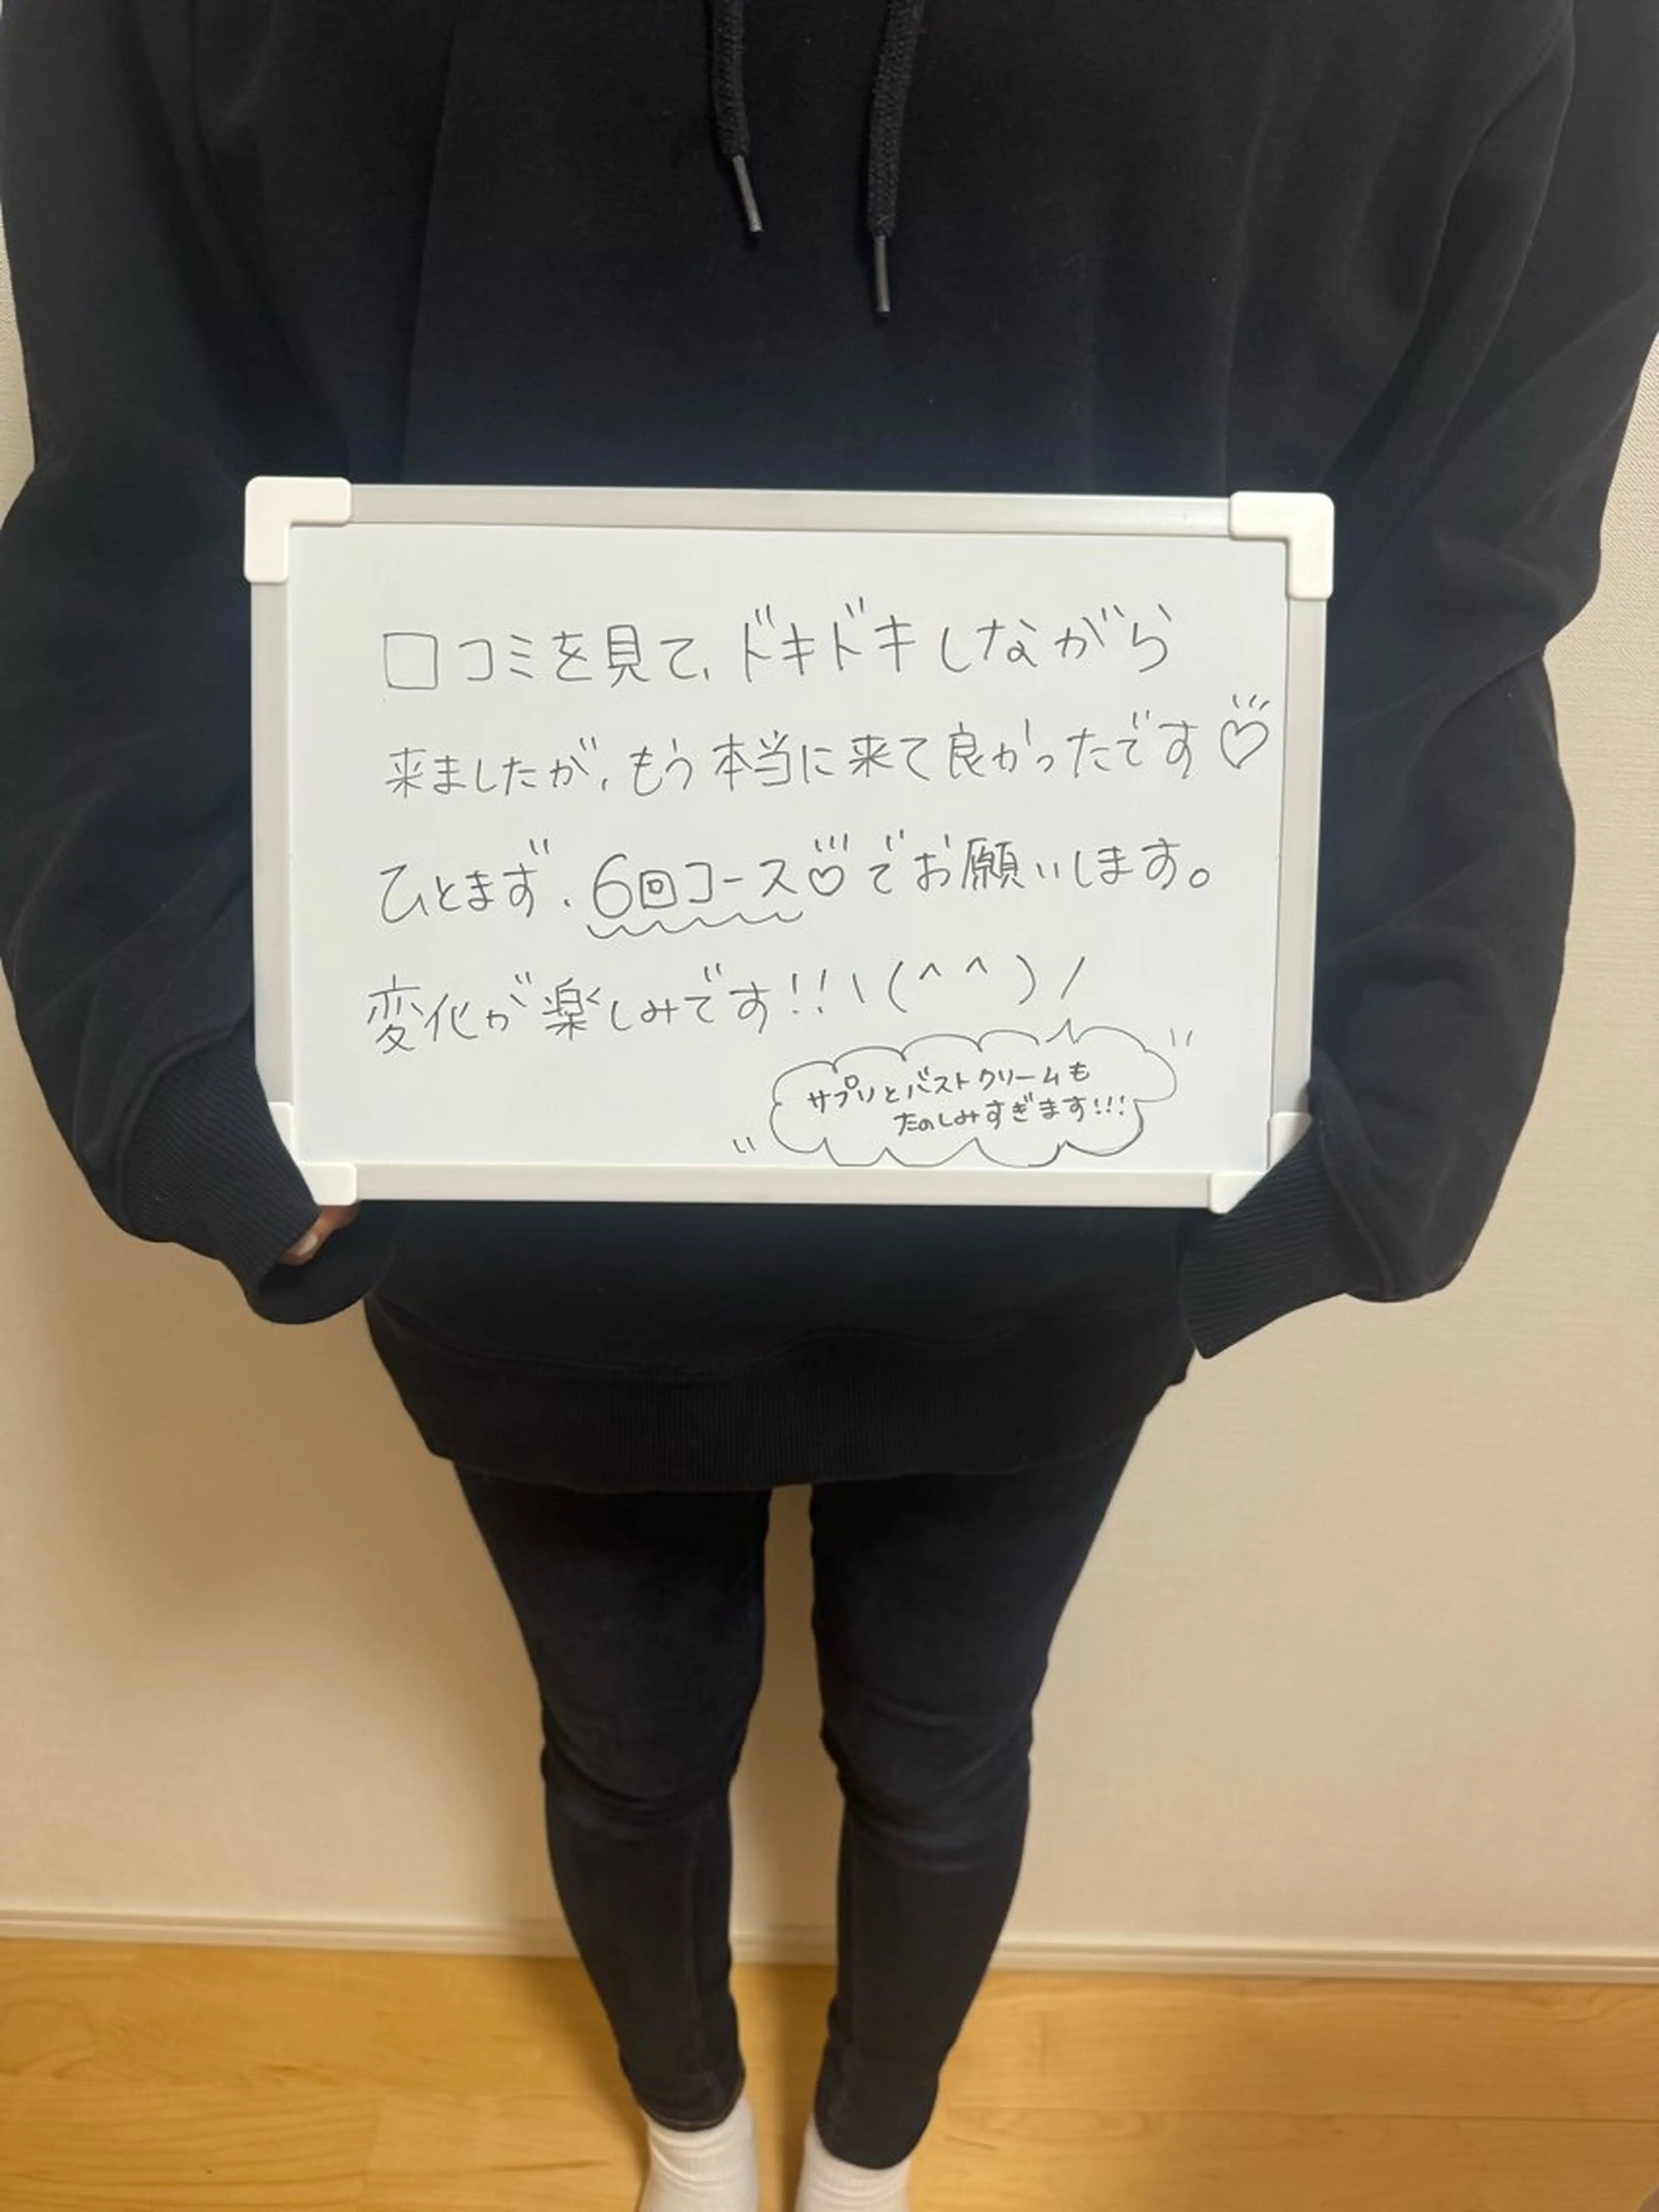 口コミを見て、ドキドキしながら
来ましたが、もう本当に来て良かったです♡
ひとまず、6回コース♡でお願いします。
変化が楽しみです!!\(^^)/
サプリとバストクリームも
たのしみすぎます!!!